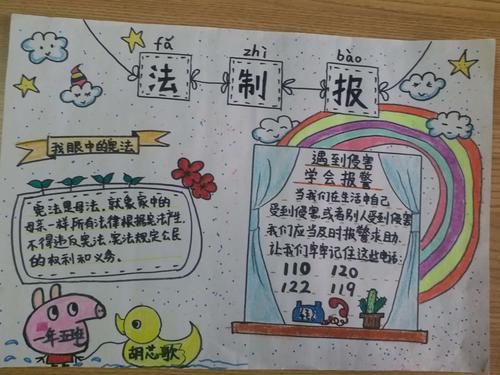 fǎ zhì bào
法制报
我眼中的宪法
宪法是母法，就象家中的
母亲一样所有法律根据宪法产生，
不得违反宪法，宪法规定公民
的权利和义务。
遇到侵害
学会报警
当我们在生活中自己
受到侵害，或者别人受到侵害
我们应当及时报警求助．
让我们牢牢记住这些电话：
110 120
122 119
一年五班
胡芯歌